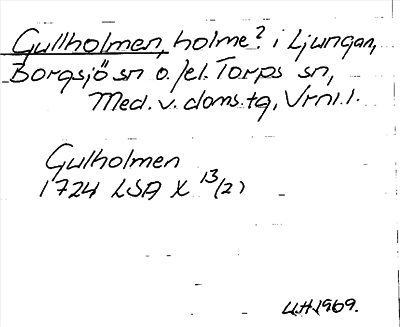 Gullholmen, holme? i Ljungan,
Borgsjö sn o./el. Torps sn,
Med. v. doms. tg, Vrnl. l.
Gulholmen
1724 LSA X 13/(2)
U.H. 1969.